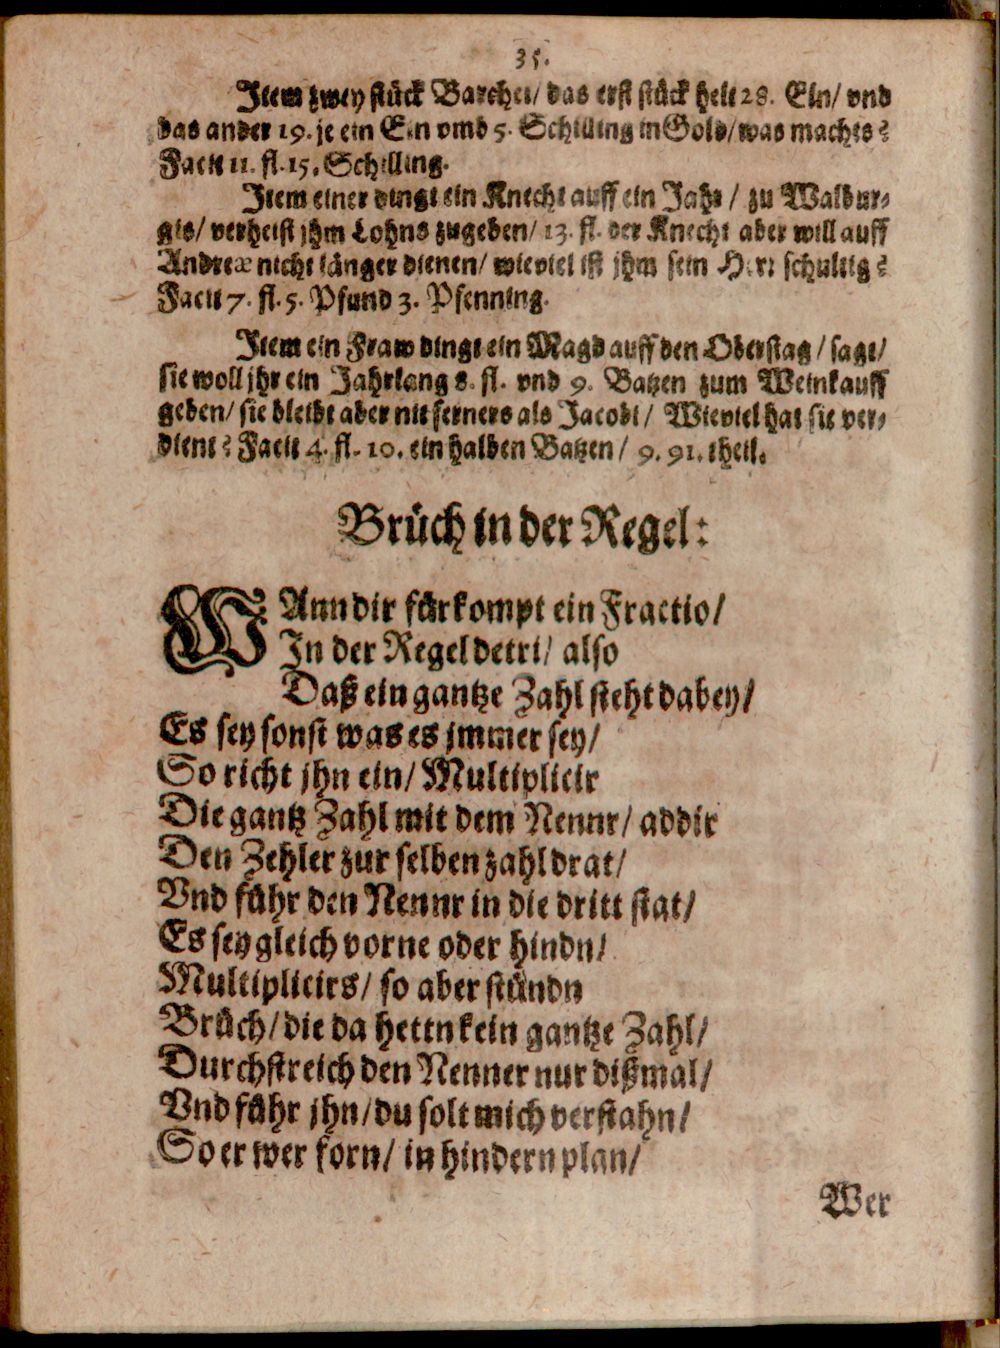 35.
Item zwey stück Barchet/ das erst stück helt 28. Eln/ vnd
das ander 19. je ein Eln vmb 5. Schilling in Gold/ was machts?
Facit 11. fl. 15. Schilling.
Item einer dingt ein Knecht auff ein Jahr / zu Walbur⸗
gis/ verheist jhm Lohns zugeben/ 13. fl. der Knecht aber will auff
Andreæ nicht länger dienen/ wieviel ist jhm sein Herr schuldig?
Facit 7. fl. 5. Pfund 3. Pfenning.
Item ein Fraw dingt ein Magd auff den Oberstag / sagt/
sie woll jhr ein Jahrlang 8. fl. vnd 9. Batzen zum Weinkauff
geben/ sie bleibt aber nit ferners als Jacobi/ Wieviel hat sie ver⸗
dient? Facit 4. fl. 10. ein halben Batzen / 9. 91. theil.
Brüch in der Regel:
WAnn dir fürkompt ein Fractio/
In der Regel detri/ also
Daß ein gantze Zahl steht dabey/
Es sey sonst was es jmmer sey/
So richt jhn ein/ Multiplicir
Die gantz Zahl mit dem Nennr/ addir
Den Zehler zur selben zahl drat/
Vnd führ den Nennr in die dritt stat/
Es sey gleich vorne oder hindn/
Multiplicirs/ so aber stündn
Brüch/ die da hettn kein gantze Zahl/
Durchstreich den Nenner nur dißmal/
Vnd führ jhn/ du solt mich verstahn/
So er wer forn/ in hindern plan/
Wer